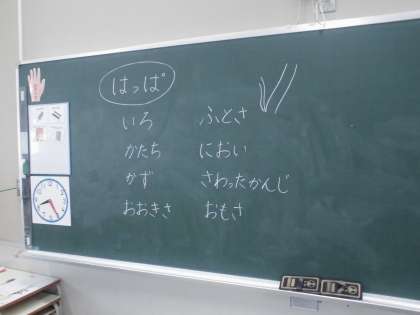 はっぱ
いろ
かたち
かず
おおきさ
ふとさ
におい
さわったかんじ
おもさ